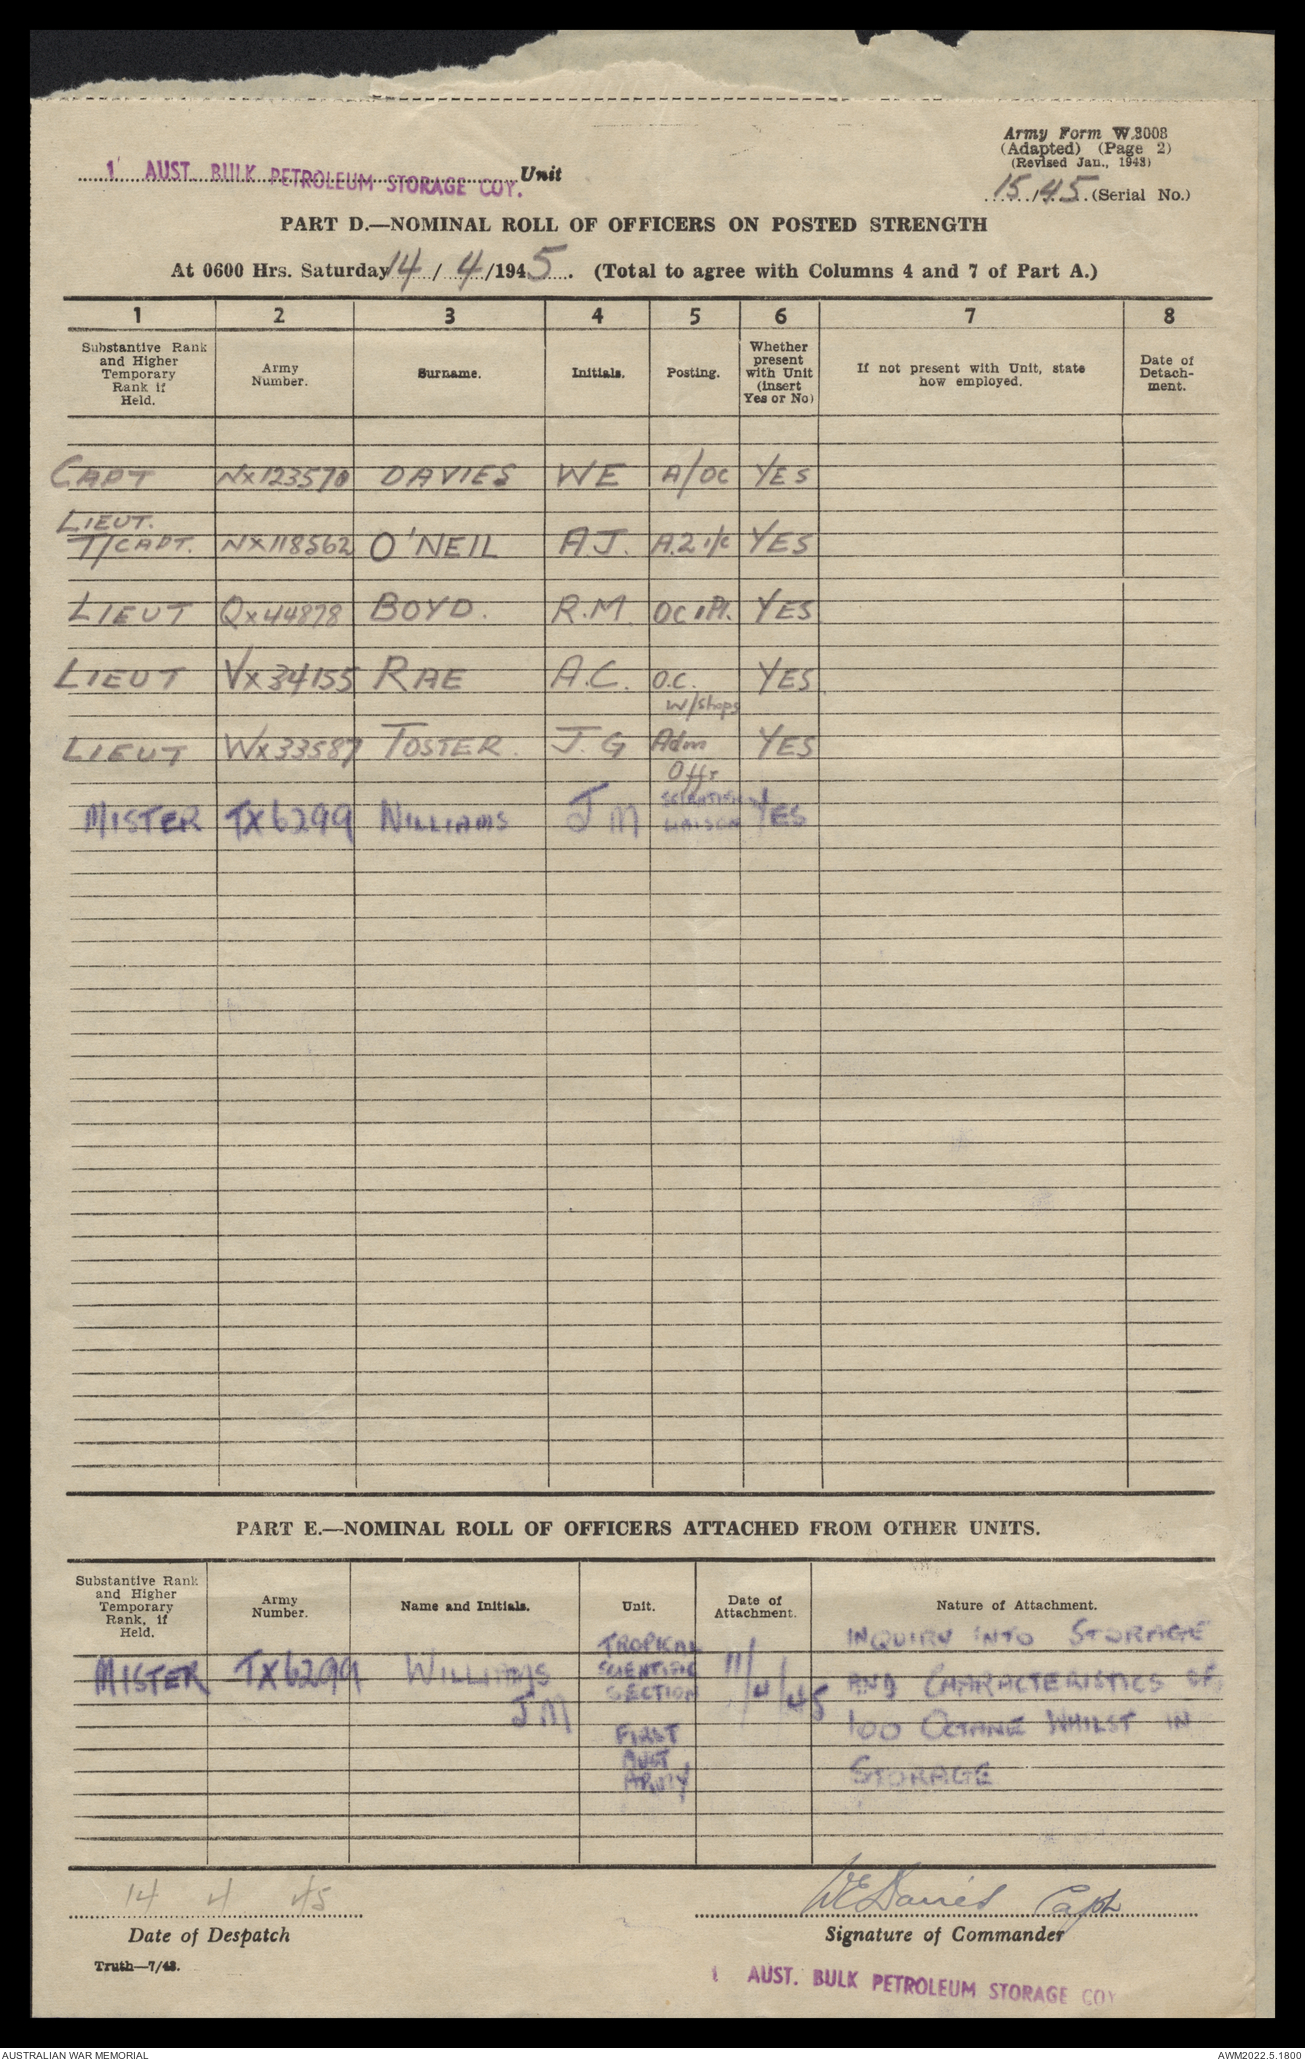 Army Form W.3008
(Adapted) (Page 2)
(Revised Jan., 1943)
1 AUST. BULK PETROLEUM STORAGE COY. Unit
15/45 (Serial No.)
PART D.—NOMINAL ROLL OF OFFICERS ON POSTED STRENGTH
At 0600 Hrs. Saturday 14 / 4 /1945. (Total to agree with Columns 4 and 7 of Part A.)
1 2 3 4 5 6 7 8
Substantive Rank and Higher Temporary Rank if Held. Army Number. Surname. Initials. Posting. Whether present with Unit (insert Yes or No) If not present with Unit, state how employed. Date of Detach-ment.
CAPT NX123570 DAVIES WE A/OC YES
LIEUT.
T/CAPT. NX118562 O'NEIL A J. A.2 i/c YES
LIEUT QX44878 BOYD. R.M. OC 1 Pl. YES
LIEUT VX34155 RAE A.C. O.C. YES
W/Shops
LIEUT WX33587 TOSTER. J. G Adm YES
Offr
MISTER TX6299 WILLIAMS J M SCIENTIFIC YES
LIAISON
PART E.—NOMINAL ROLL OF OFFICERS ATTACHED FROM OTHER UNITS.
Substantive Rank and Higher Temporary Rank, if Held. Army Number. Name and Initials. Unit. Date of Attachment. Nature of Attachment.
MISTER TX6299 WILLIAMS J M TROPICAL SCIENTIFIC SECTION FIRST AUST ARMY 11/4/45 INQUIRY INTO STORAGE
AND CHARACTERISTICS OF
100 OCTANE WHILST IN
STORAGE
14 4 45
WEDavies Capt
Date of Despatch
Signature of Commander
Truth—7/43.
1 AUST. BULK PETROLEUM STORAGE COY
AUSTRALIAN WAR MEMORIAL
AWM2022.5.1800